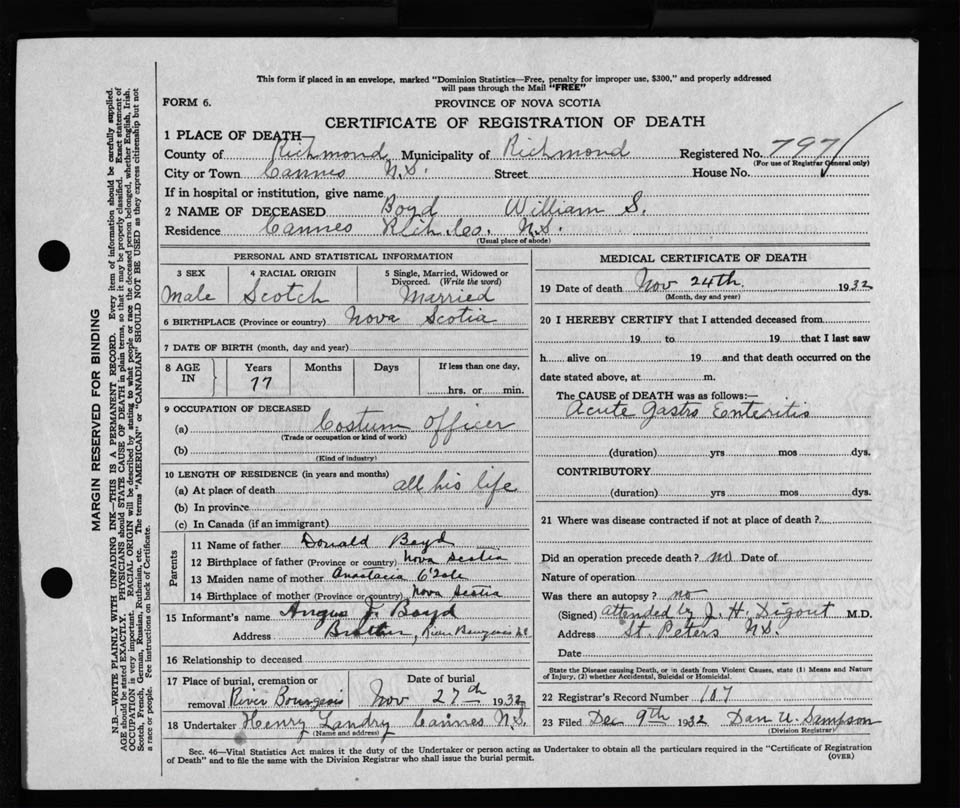 This form if placed in an envelope, marked "Dominion Statistics—Free, penalty for improper use, $300," and properly addressed
will pass through the Mail "FREE"
FORM 6.
PROVINCE OF NOVA SCOTIA
CERTIFICATE OF REGISTRATION OF DEATH
1 PLACE OF DEATH—
County of Richmond Municipality of Richmond Registered No. 797
(For use of Registrar General only)
City or Town Cannes N.S. Street House No.
If in hospital or institution, give name
2 NAME OF DECEASED Boyd William S.
Residence Cannes Rich. Co. N.S.
(Usual place of abode)
PERSONAL AND STATISTICAL INFORMATION
3 SEX 4 RACIAL ORIGIN 5 Single, Married, Widowed or
Divorced. (Write the word)
Male Scotch Married
6 BIRTHPLACE (Province or country) Nova Scotia
7 DATE OF BIRTH (month, day and year)
8 AGE IN Years Months Days If less than one day,
77 hrs. or min.
9 OCCUPATION OF DECEASED
(a) Costum Officer
(Trade or occupation or kind of work)
(b)
(Kind of industry)
10 LENGTH OF RESIDENCE (in years and months)
(a) At place of death all his life
(b) In province
(c) In Canada (if an immigrant)
Parents
11 Name of father Donald Boyd
12 Birthplace of father (Province or country) Nova Scotia
13 Maiden name of mother
14 Birthplace of mother (Province or country) Nova Scotia
15 Informant's name Angus J. Boyd
Address Brother, River Bourgeois
16 Relationship to deceased
17 Place of burial, cremation or Date of burial
removal River Bourgeois Nov 27th 1932
18 Undertaker Henry Landry Cannes N.S.
(Name and address)
MEDICAL CERTIFICATE OF DEATH
19 Date of death Nov 24th. 1932
(Month, day and year)
20 I HEREBY CERTIFY that I attended deceased from
19 to 19 that I last saw
h alive on 19 and that death occurred on the
date stated above, at m.
The CAUSE OF DEATH was as follows:—
Acute Gastro Enteritis
(duration) yrs mos dys.
CONTRIBUTORY
(duration) yrs mos dys.
21 Where was disease contracted if not at place of death?
Did an operation precede death? no Date of
Nature of operation
Was there an autopsy? no
(Signed) attended by J. H. Digout M.D.
Address St. Peters N.S.
Date
State the Disease causing Death, or in death from Violent Causes, state (1) Means and Nature
of Injury, (2) whether Accidental, Suicidal or Homicidal.
22 Registrar's Record Number 107
23 Filed Dec 9th 1932 Dan U. Sampson
(Division Registrar)
Sec. 46—Vital Statistics Act makes it the duty of the Undertaker or person acting as Undertaker to obtain all the particulars required in the "Certificate of Registration
of Death" and to file the same with the Division Registrar who shall issue the burial permit.
(OVER)
MARGIN RESERVED FOR BINDING
N.B.—WRITE PLAINLY WITH UNFADING INK—THIS IS A PERMANENT RECORD. Every item of information should be carefully supplied.
AGE should be stated EXACTLY. PHYSICIANS should STATE CAUSE OF DEATH in plain terms, so that it may be properly classified. Exact statement of
OCCUPATION is very important. RACIAL ORIGIN will be described by stating to what people or race the deceased person belonged, whether English, Irish,
Scotch, French, German, Russian, Ruthenian, etc. The terms "AMERICAN" or "CANADIAN" SHOULD NOT BE USED as they express citizenship but not
a race or people. See instructions on back of Certificate.